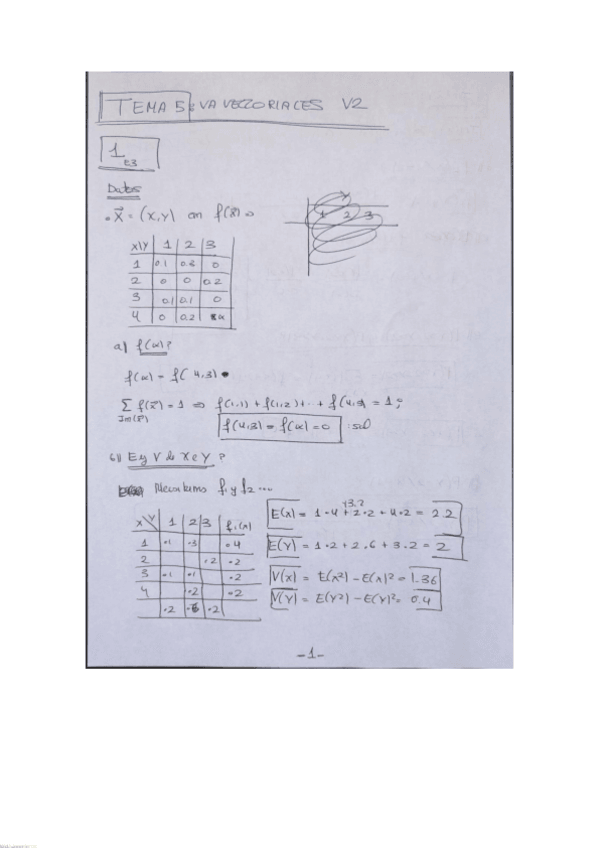 TEMA 5: VA VECTORIALES V2
1 E3
Datos
• X⃗ = (X,Y) con f(x⃗) =
Y
1 2 3
X\Y 1 2 3
1 0.1 0.3 0
2 0 0 0.2
3 0.1 0.1 0
4 0 0.2 α
a) f(α)?
f(α) = f(4,3)
Σ f(x⃗) = 1 ⇒ f(1,1) + f(1,2) + ... + f(4,3) = 1;
Im(x⃗)
f(4,3) = f(α) = 0 : sol
b) E y V de X e Y?
Necesitamos f1 y f2 ...
X\Y 1 2 3 f1(x)
1 .1 .3 .4
2 .2 .2
3 .1 .1 .2
4 .2 .2
.2 .6 .2
+3.2
E(X) = 1·4 + 2·2 + 4·2 = 2.2
E(Y) = 1·2 + 2·6 + 3·2 = 2
V(X) = E(X²) - E(X)² = 1.36
V(Y) = E(Y²) - E(Y)² = 0.4
-1-